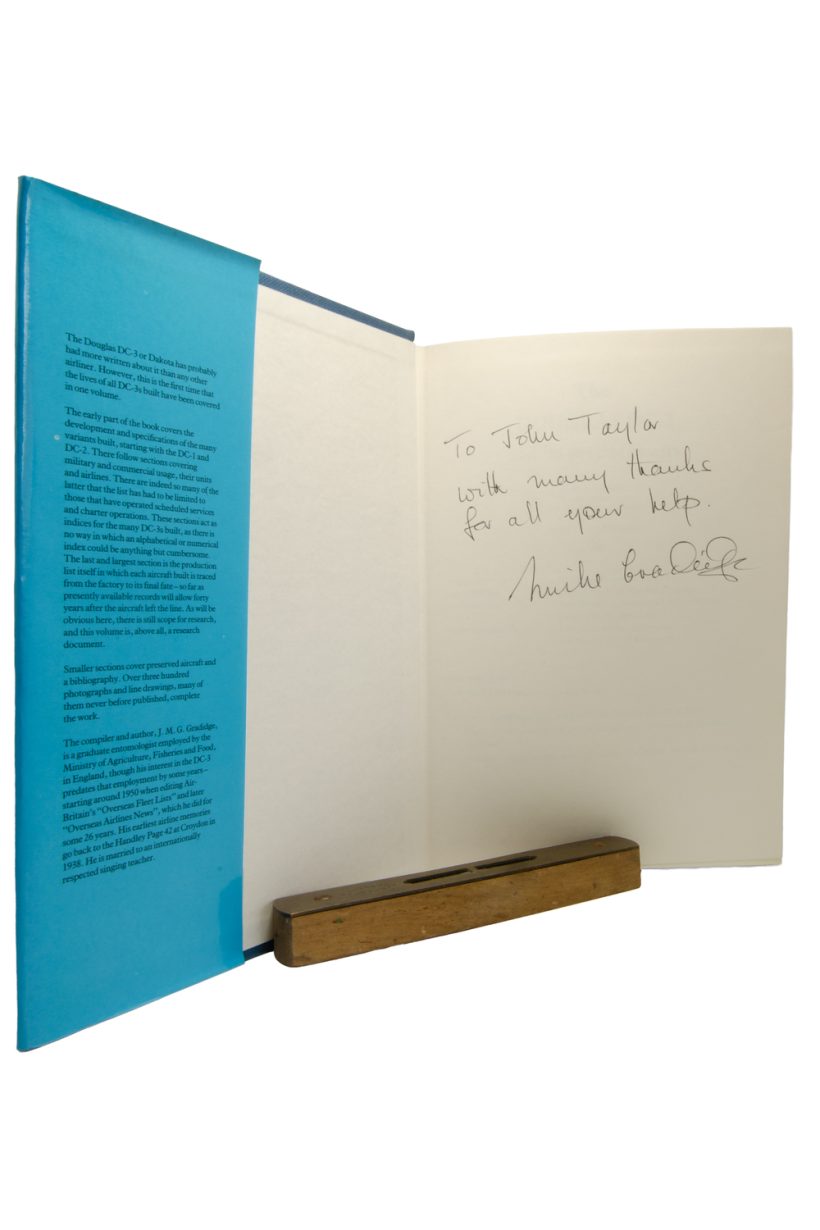 The Douglas DC-3 or Dakota has probably
had more written about it than any other
airliner. However, this is the first time that
the lives of all DC-3s built have been covered
in one volume.
The early part of the book covers the
development and specifications of the many
variants built, starting with the DC-1 and
DC-2. There follow sections covering
military and commercial usage, their units
and airlines. There are indeed so many of the
latter that the list has had to be limited to
those that have operated scheduled services
and charter operations. These sections act as
indices for the many DC-3s built, as there is
no way in which an alphabetical or numerical
index could be anything but cumbersome.
The last and largest section is the production
list itself in which each aircraft built is traced
from the factory to its final fate – so far as
presently available records will allow forty
years after the aircraft left the line. As will be
obvious here, there is still scope for research,
and this volume is, above all, a research
document.
Smaller sections cover preserved aircraft and
a bibliography. Over three hundred
photographs and line drawings, many of
them never before published, complete
the work.
The compiler and author, J. M. G. Gradidge,
is a graduate entomologist employed by the
Ministry of Agriculture, Fisheries and Food,
in England, though his interest in the DC-3
predates that employment by some years –
starting around 1950 when editing Air-
Britain's "Overseas Fleet Lists" and later
"Overseas Airlines News", which he did for
some 26 years. His earliest airline memories
go back to the Handley Page 42 at Croydon in
1938. He is married to an internationally
respected singing teacher.
To John Taylor
with many thanks
for all your help.
Mike Gradidge